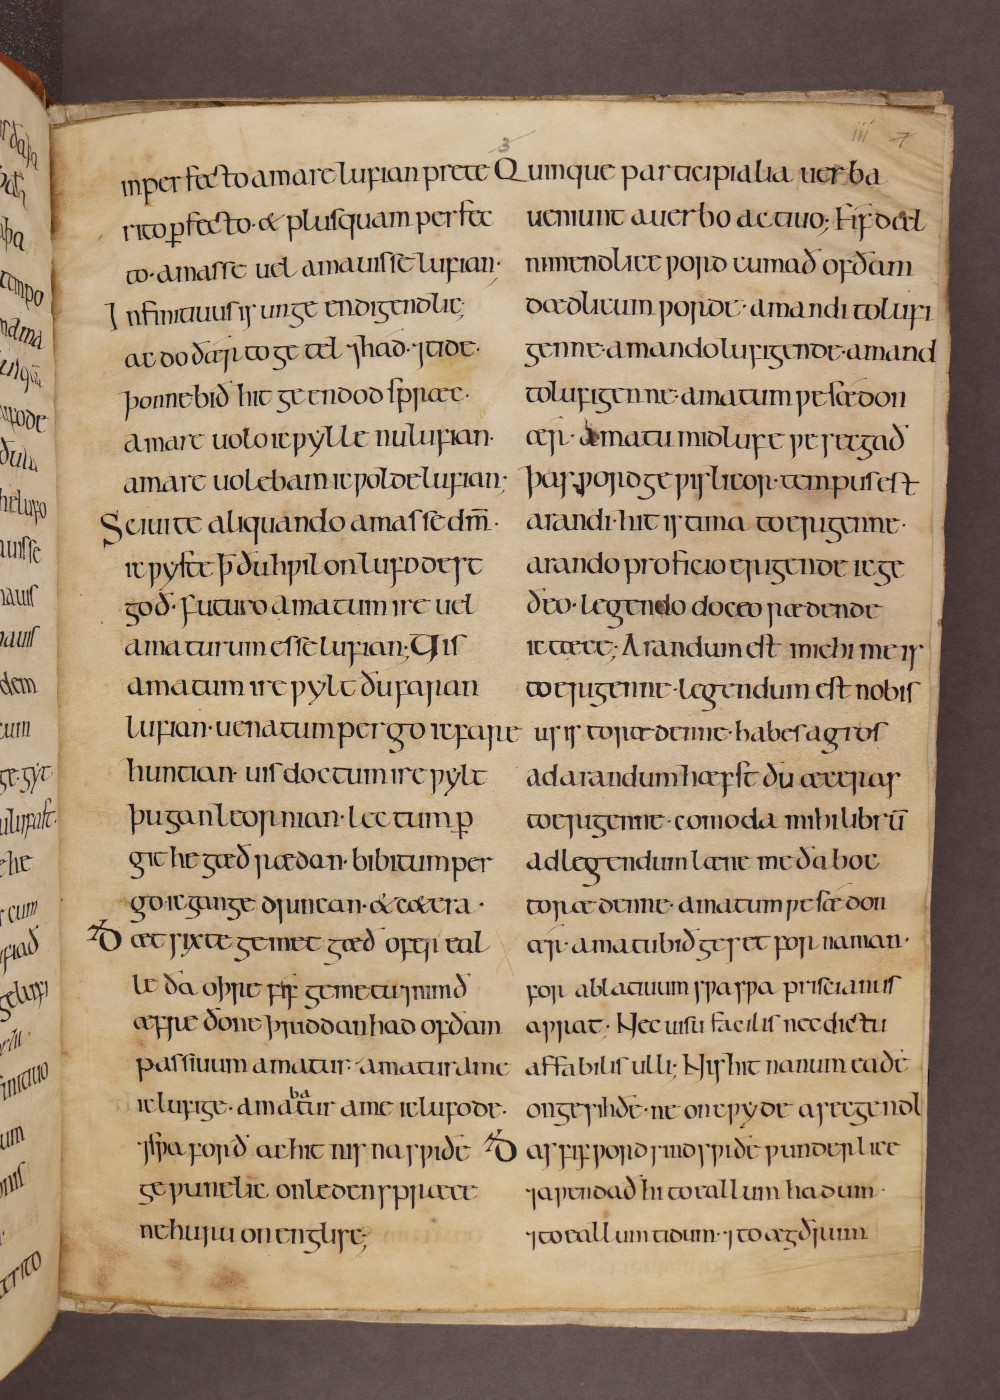 3
iii 7
inperfecto amare lufian prete
rito ꝑfecto· & plusquam perfec
to· amasse uel amauisse lufian·
Infinitiuus is ungeendigendlic;
ac do ðær to getel ⁊ had· ⁊ tide·
þonne bið hit geendod spræc·
amare uolo ic wylle nu lufian·
amare uolebam ic wolde lufian;
Sciui te aliquando amasse dm̄·
ic wyste þ̄ ðu hwilon lufodest
god· futuro amatum ire uel
amaturum esse lufian; Uis
amatum ire wylt ðu faran
lufian· uenatum pergo ic fare
huntian· uis doctum ire wylt
þu gan leornian· lectum ꝑ
git he gæð rædan· bibitum per
go ic gange drincan· & cætera·
Ðæt sixte gemet gæð ofer eal
le ða oþre fif gemetu nimð
æfre ðone þriddan had of ðam
passiuum amatur· amatur a me
ic lufige· amabatur a me ic lufode·
⁊ swa forð ac hit nis na swiðe
gewunelic on ledenspræce
ne huru on englisc;
Quinque participialia uerba
ueniunt a uerbo actiuo; Fif dæl
nimendlice word cumað of ðam
dædlicum worde· amandi to lufi
genne· amando lufigende· amand
to lufigenne· amatum we sædon
ær· amatu mid lufe we secgað
þas word gewislicor· tempus est
arandi· hit is tima to erigenne·
arando proficio erigende ic ge
ðeo· legendo doceo rædende
ic tæce; Arandum est michi me is
to erigenne· legendum est nobis
us is to rædenne· habes agros
ad arandum hæfst ðu æceras
to erigenne· comoda mihi librū
ad legendum læne me ða boc
to rædenne· amatum we sædon
ær· amatu bið geset for naman·
for ablatiuum swa swa priscianus
awrat· Nec uisu facilis nec dictu
affabilis ulli; Nis hit nanum eaðe
on gesihðe· ne on cwyde asecgendl
Ðas fif word sind swiðe wunderlice
⁊ awendað hi to eallum hadum·
⁊ to eallum tidum· ⁊ to ægðrum